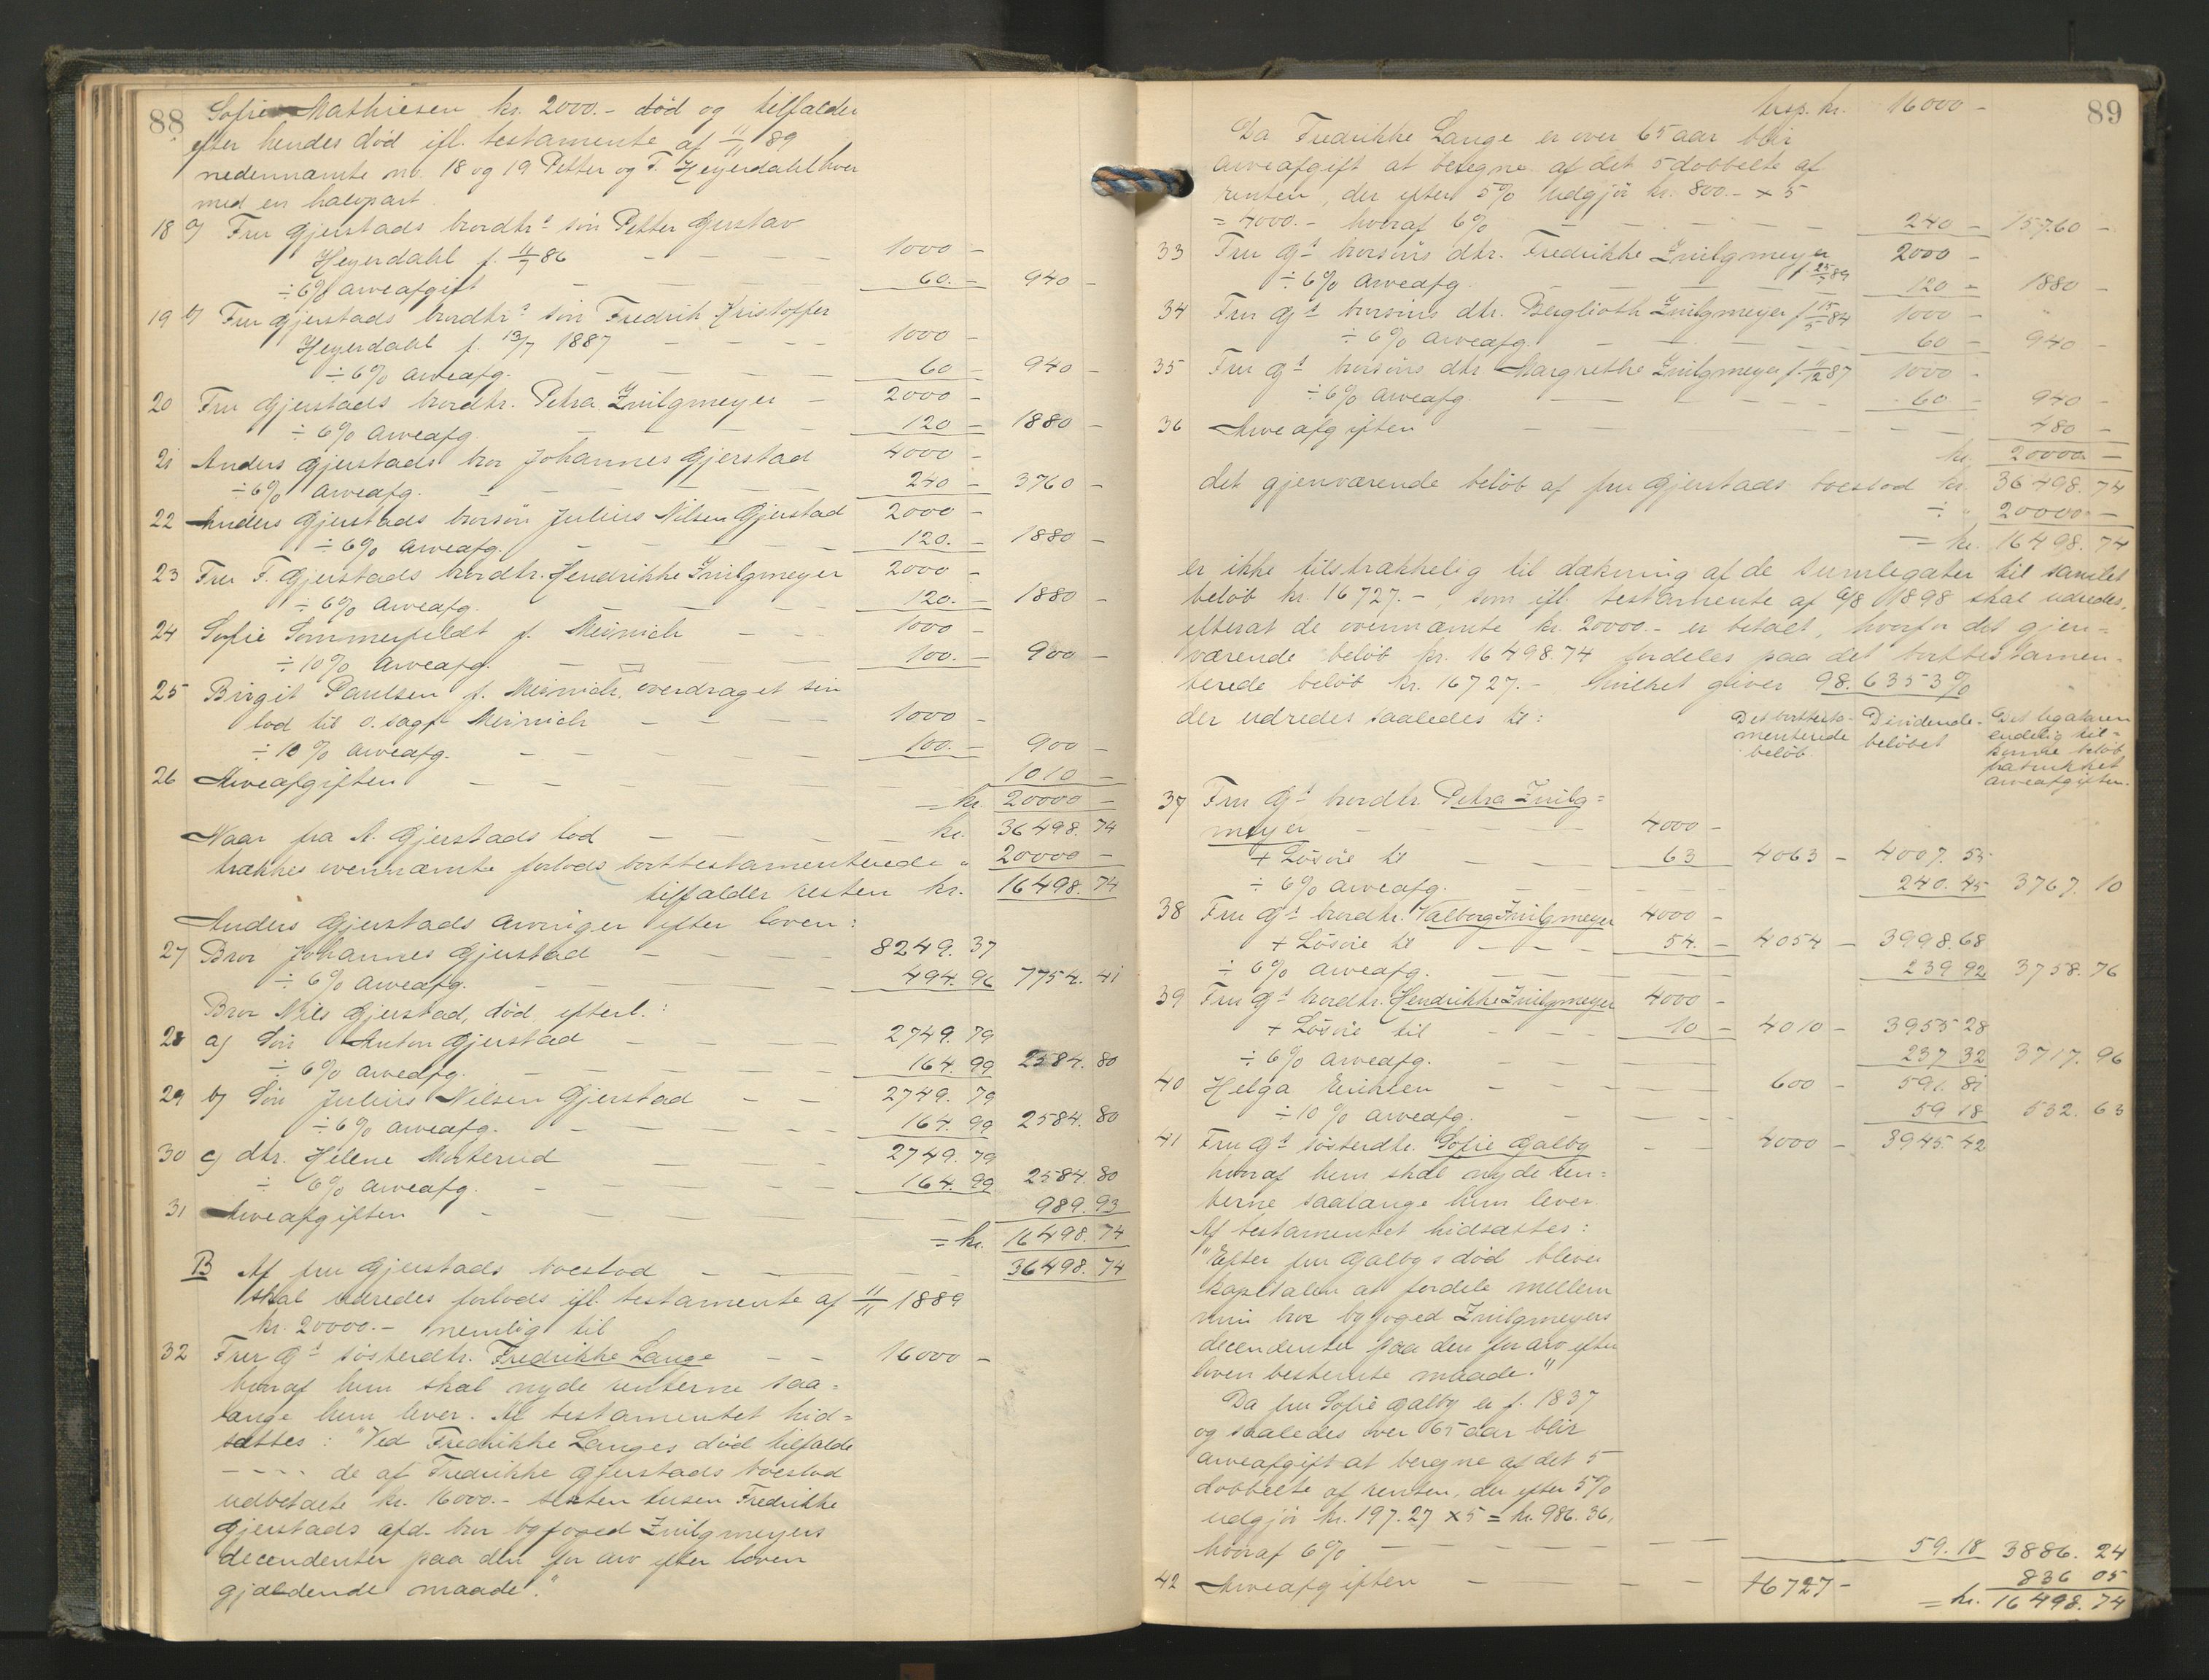 88
Sofie Mathiesen kr. 2000.- död og tilfalder
efter hendes död ifl. testamente af 11/11 89
nedennævnte no. 18 og 19 Petter og F. Heyerdahl hver
med en halvpart.
18 a) Fru Gjerstads brordtrs sön Petter Gustav
Heyerdahl f. 11/7 86 — — — 1000 -
÷ 6% arveafgift — — — 60. - 940 -
19 b) Fru Gjerstads brordtrs sön Fredrik Kristoffer
Heyerdahl f. 13/7 1887 — — — 1000 -
÷ 6% arveafg. — — — 60 - 940 -
20 Fru Gjerstads brordtr. Petra Zwilgmeyer — 2000 -
÷ 6% arveafg. — — — 120 - 1880 -
21 Anders Gjerstads bror Johannes Gjerstad 4000 -
÷ 6% arveafg. — — — 240 - 3760 -
22 Anders Gjerstads brorsön Julius Nilsen Gjerstad 2000 -
÷ 6% arveafg. — — — 120. - 1880 -
23 Fru F. Gjerstads brordtr. Hendrikke Zwilgmeyer 2000 -
÷ 6% arveafg. — — — 120. - 1880 -
24 Sofie Sommerfeldt f. Meinich — — 1000 -
÷ 10% arveafg. — — 100. - 900 -
25 Birgit Paulsen f. Meinich, overdraget sin
lod til o.sagf. Meinich — — — 1000 -
÷ 10% arveafg. — — — 100. - 900 -
26 Arveafgiften — — 1010 -
= kr. 20000 -
Naar fra A. Gjerstads lod — — — kr. 36498. 74
trækkes ovennævnte forlods borttestamenterede " 20000 -
tilfalder resten kr. 16498. 74
Anders Gjerstads arvinger efter loven:
27 Bror Johannes Gjerstad — — — 8249. 37
÷ 6% arveafg. — — — 494. 96 7754. 41
Bror Nils Gjerstad, död, efterl.:
28 a) Sön Anton Gjerstad — — — 2749. 79
÷ 6% arveafg. — — — 164. 99 2584. 80
29 b) Sön Julius Nilsen Gjerstad — — 2749. 79
÷ 6% arveafg. — — — 164. 99 2584. 80
30 c) dtr. Helene Morterud — — — 2749. 79
÷ 6% arveafg. — — — 164. 99 2584. 80
31 Arveafgiften — — — 989. 93
= kr. 16498. 74
B Af fru Gjerstads boeslod — — — 36498. 74
skal udredes forlods ifl. testamente af 11/11 1889
kr. 20000.- nemlig til
32 Fru Gs sösterdtr. Fredrikke Lange — — 16000 -
hvoraf hun skal nyde renterne saa=
lange hun lever. Af testamentet hid=
sættes: "Ved Fredrikke Langes död tilfalde
- - - - de af Fredrikke Gjerstads boeslod
udbetalte kr. 16000.- sexten tusen Fredrikke
Gjerstads afd. bror byfoged Zwilgmeyers
decendenter paa den for arv efter loven
gjældende maade."
89
trsp. kr. 16000 -
Da Fredrikke Lange er over 65 aar blir
arveafgift at beregne af det 5 dobbelte af
renten, der efter 5% udgjör kr. 800.- × 5
= 4000.- hvoraf 6% — — — 240 - 15760 -
33 Fru Gs brorsöns dtr. Fredrikke Zwilgmeyer 2000 -
f. 25/5 89
÷ 6% arveafg. — — — 120 - 1880 -
34 Fru Gs brorsöns dtr. Bergljoth Zwilgmeyer f. 15/5 84 1000 -
÷ 6% arveafg. — — — 60 - 940 -
35 Fru Gs brorsöns dtr. Margrethe Zwilgmeyer f. 11/12 87 1000 -
÷ 6% arveafg. — — — 60 - 940 -
36 Arveafgiften — — — 480 -
kr. 20000 -
det gjenværende belöb af fru Gjerstads boeslod kr. 36498. 74
÷ " 20000 -
= kr. 16498. 74
er ikke tilstrækkelig til dækning af de sumlegater til samlet
belöb kr. 16727.-, som ifl. testamente af 6/8 1898 skal udredes,
efterat de ovennævnte kr. 20000.- er betalt, hvorfor det gjen=
værende belöb kr. 16498.74 fordeles paa det borttestamen=
terede belöb kr. 16727.- hvilket giver 98.6353%
der udredes saaledes til:
Det borttesta-
menterede
belöb.
Dividende-
belöbet
Det legataren
endelig til=
komne belöb
fratrukket
arveafgiften.
37 Fru Gs brordtr. Petra Zwilg=
meyer — — — 4000 -
+ Lösöre til — — 63 4063 - 4007. 55
÷ 6% arveafg. — — — 240. 45 3767. 10
38 Fru Gs brordtr. Valborg Zwilgmeyer 4000 -
+ Lösöre til — — — 54. - 4054 - 3998.68
÷ 6% arveafg. — — — 239 92 3758. 76
39 Fru Gs brordtr. Hendrikke Zwilgmeyer 4000 -
+ Lösöre til — — — 10 - 4010 - 3955 28
÷ 6% arveafg. — — — 237 32 3717. 96
40 Helga Eriksen — — — 600 - 591. 81
÷ 10% arveafg. — — — 59 18 532. 63
41 Fru Gs sösterdtr. Sofie Galby — — 4000 - 3945 42
hvoraf hun skal nyde ren=
terne saalange hun lever
Af testamentet hidsættes:
"Efter fru Galbys död bliver
kapitalen at fordele mellem
min bror byfoged Zwilgmeyers
decendenter paa den for arv efter
loven bestemte maade."
Da fru Sofie Galby er f. 1837
og saaledes over 65 aar blir
arveafgift at beregne af det 5
dobbelte af renten, der efter 5%
udgjör kr. 197.27 × 5 = kr. 986.36,
hvoraf 6% — — — 59. 18 3886. 24
42 Arveafgiften — — — 16727 - 836 05
= kr. 16498. 74